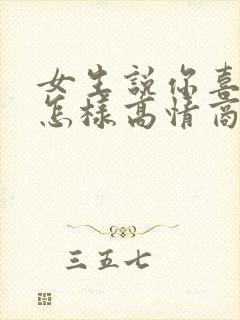 女生说你喜
怎样高情商
三五七